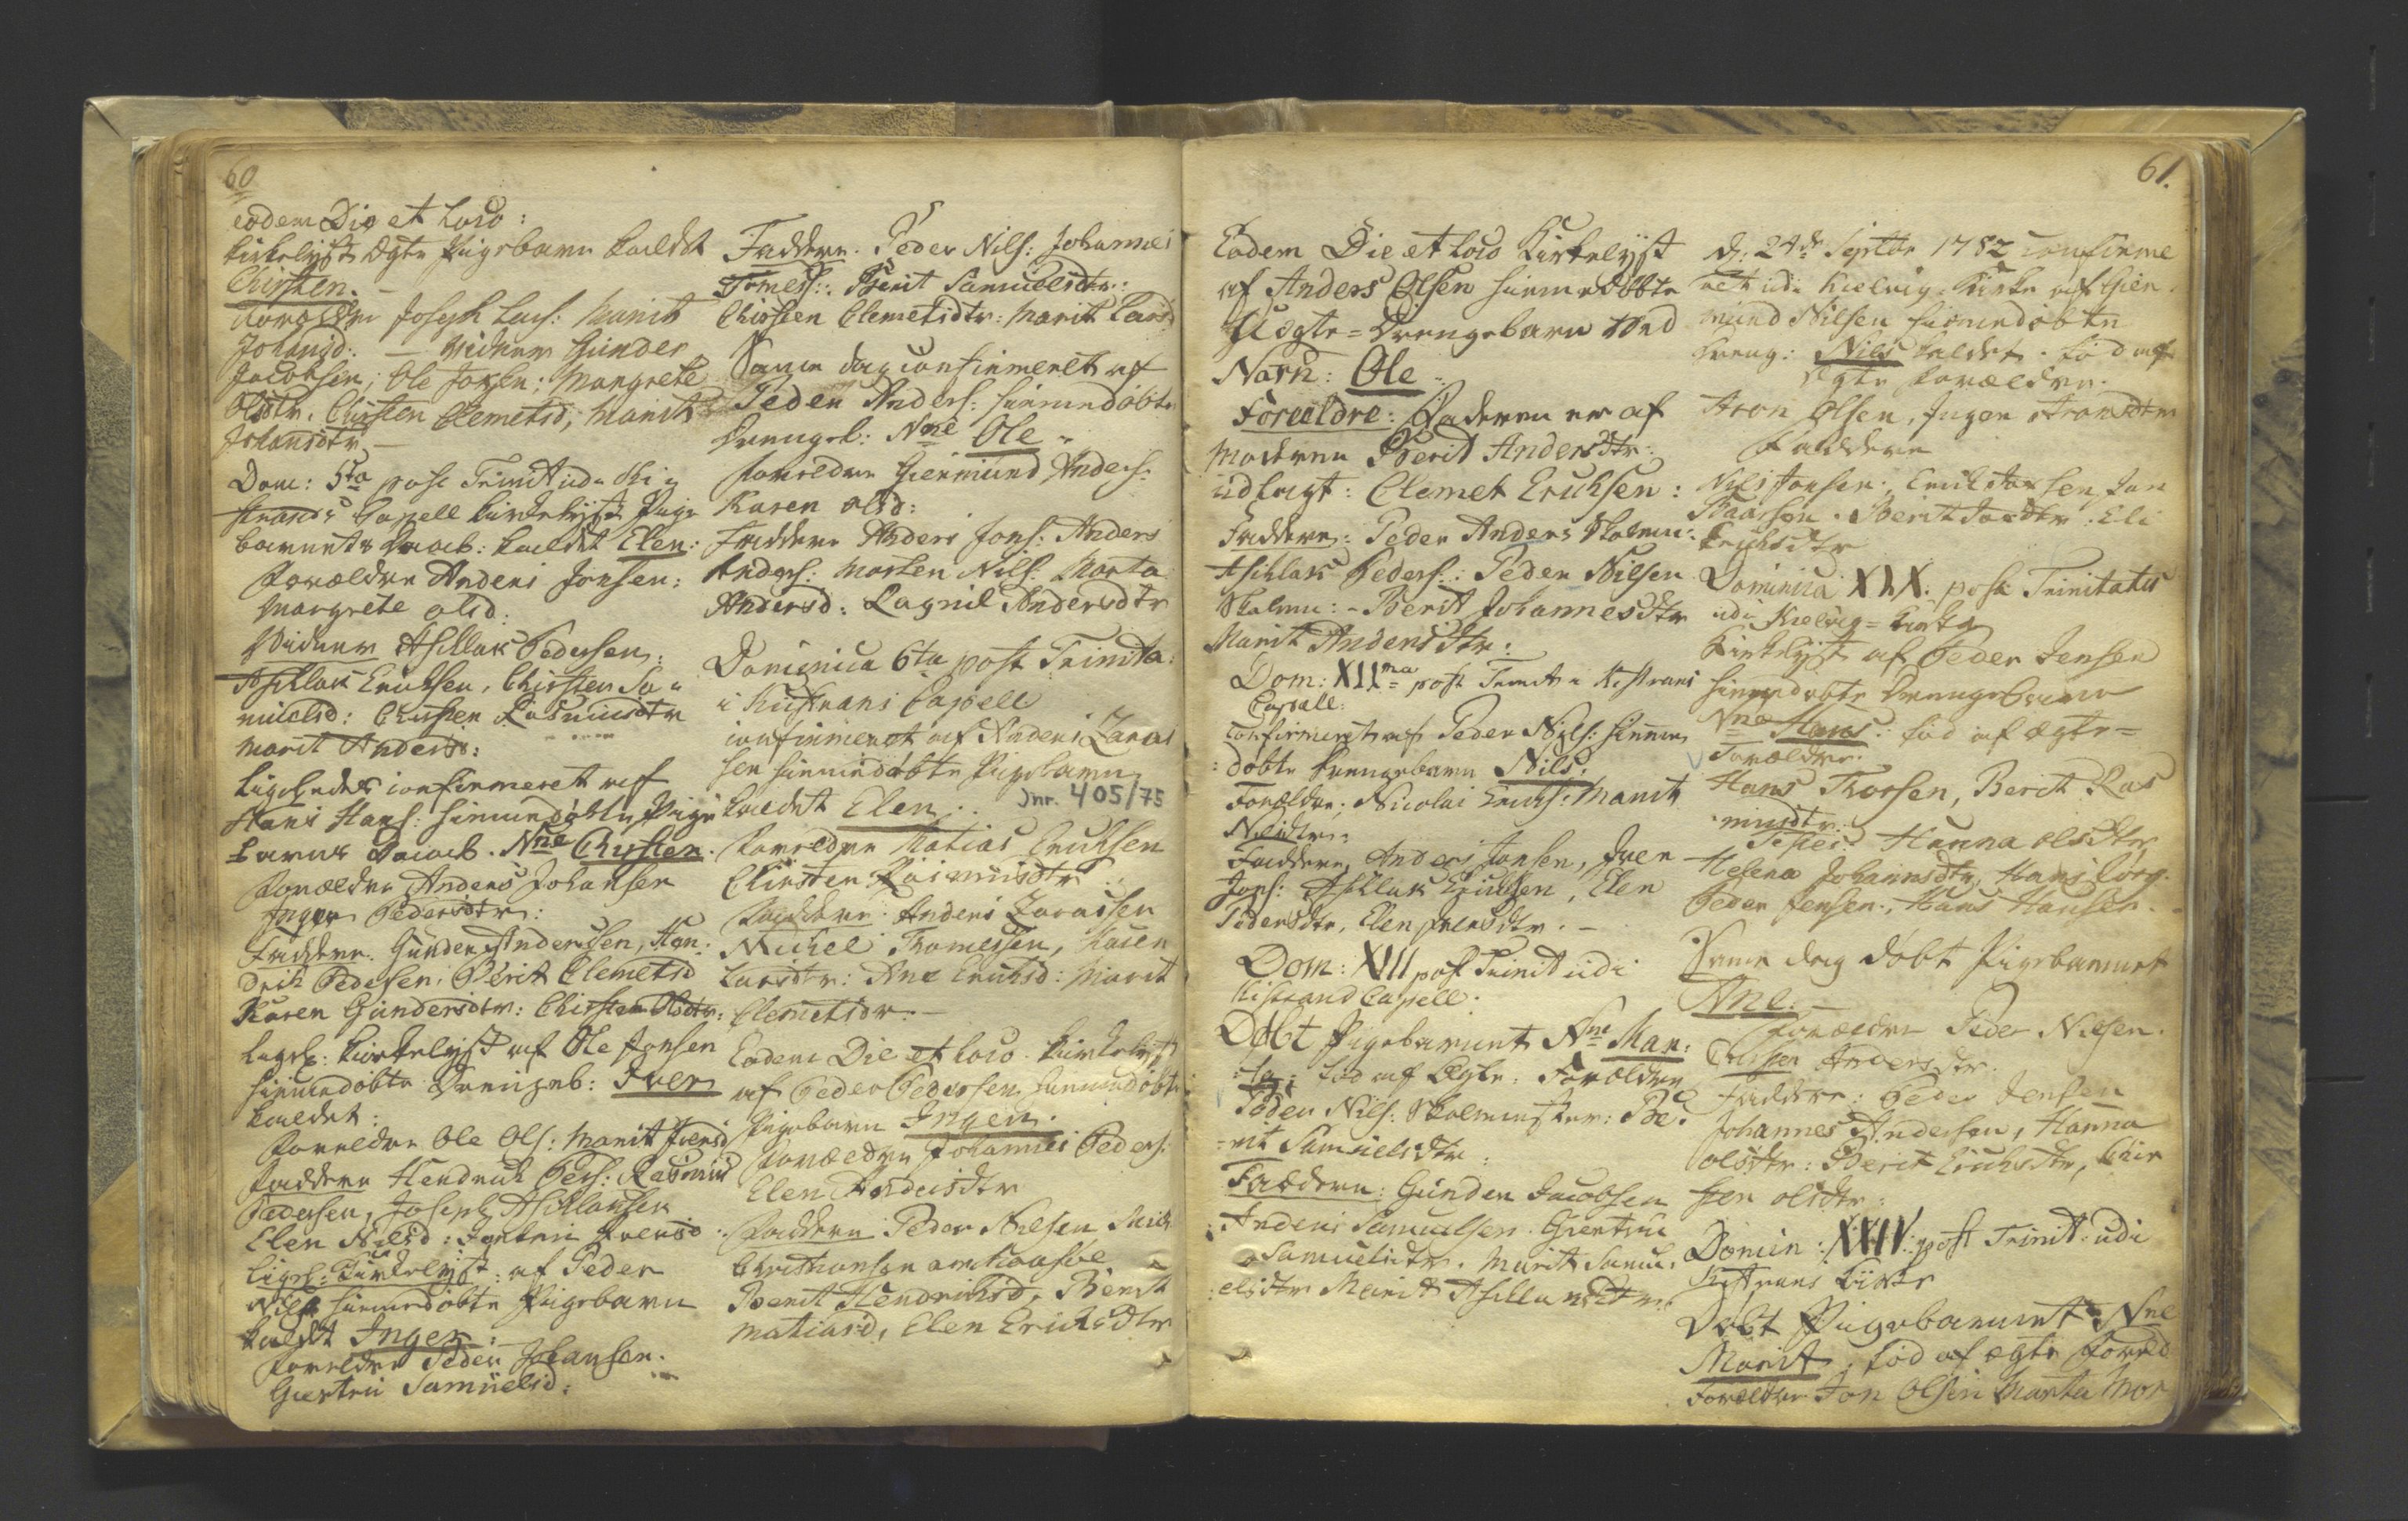 60
eodem Die et Loco:
kirkelyst Ægte Pigebarn kaldet
Chirsten. –
Forældre Joseph Lars: Marit
Johansd: – Vidner Gunder
Jacobsen; Ole Jonsen: Margrete
Olsdtr. Chirsten Clemetsd, Marit
Johansdtr –
Dom: 5ta post Trinit udi Ki
strands Capell kirkelyst Pige
barnet kaldet Elen:
Forældre Anders Jonsen:
Margrete olsd:
Vidner Aschlak Pedersen:
Aschlak Erichsen, Chirsten Sa
muelsd: Chirsten Rasmusdtr
Marit Andersd:
Ligeledes confirmeret af
Hans Hans: hiemmedøbte Pige
barn Nne Chirsten.
Forældre Anders Johansen
Inger Pedersdtr:
Faddere. Gunder Andersen, Hen
drik Pedersen, Berit Clemetsd
Karen Gundersdtr: Chirsten Olsdtr:
Ligel: kirkelyst af Ole Jonsen
hiemmedøbte Drengeb: Iver
kaldet:
Forældre Ole Ols: Marit Iversd
Faddere Hendrich Pers: Rasmus
Pedersen, Joseph Aschlaksen
Elen Nilsd: Iversd
Ligel: kirkelyst af Peder
Nils hiemmedøbte Pigebarn
kaldet Inger:
Forældre Peder Johansen.
Giertru Samuelsd:
Faddere. Peder Nils: Johannes
Tomess: Berit Samuelsdtr:
Chirsten Clemetsdtr: Marit Larsd
Samme dag confirmeret af
Peder Anders: hiemmedøbte
Drengeb: Nne Ole
Forældre Giermund Anders:
Karen olsd:
Faddere Anders Jons: Anders
Anders: Morten Nils: Marta
Andersd: Lagnil Andersdtr
Dominica 6ta post Trinita:
i Kistrans Capell
confirmeret af Anders Zaras
sen hiemmedøbte Pigebarn
kaldet Elen. Jnr. 405/75
Forældre Matias Erichsen
Chirsten Rasmusdtr
Faddere. Anders Zarassen
Michel Thomessen, Karen
Larsdtr: Ane Erichsd: Marit
Clemetsdr. –
Eodem Die et Loco kirkelyst
af Peder Pedersen hiemmedøbt
Pigebarn Inger.
Forældre Johannes Peders:
Elen Andersdtr
Faddere Peder Nielsen
Berit Hendrichsd, Berit
Matiasd, Elen Erichsdtr
61.
Eodem Die et Loco Kirkelyst
af Anders Olsen hiemmedøbte
Uægte=Drengebarn ved
Navn: Ole
Forældre: Faderen er af
Moderen Berit Andersdtr:
udlagt: Clemet Erichsen:
Faddere: Peder Anders Skolem:
Aschlak Peders: Peder Nilsen
Skolem: – Berit Johannesdtr
Marit Andersdtr:
Dom: XIIma post Trinit Kistrans
Capell:
Confirmeret af Peder Nils: hiemme
døbte Drengebarn Nils:
Forældre: Nicolai Erichs: Marit
Nilsdtr:
Faddere, Anders Jonsen, Iver
Jons: Aschlak Erichsen, Elen
Pedersdtr, Elen Iversdtr. –
Dom: XII post Trinit udi
Kistrand Capell.
Døbt Pigebarnet Nne Mar:
ta: fød af Ægte: Forældre
Peder Nils: Skolemester: Be:
rit Samuelsdtr:
Faddere: Gunder Jacobsen
Anders Samuelsen Giertru
Samuelsdtr. Marit Samu:
elsdtr Marit Aschlaksdtr
d: 24de Septbr 1752 confirme
ret udi Kielvig Kirke af Gier
mund Nilsen hiemmedøbte
Dreng: Nils kaldet. fød af
Ægte Forældre.
Aron Olsen, Inger Aronsdtr
Faddere
Nils Jonsen, Erich Jonsen, Jon
Baarsen. Berit Jonsdtr. Eli
Erichsdtr
Dominica XIX: post Trinitatis
udi Kielvig = Kirke
Kirkelyst af Peder Jensen
hiemmedøbte Drengebarn
Nne Hans: fød af ægte=
Forældre.
Hans Thorsen, Berit Ras
musdtr.
Testes: Hanna olsdtr
Helena Johannsdtr, Hans
Peder Jensen, Hans Hansen.
Samme dag døbt Pigebarnet
Ane. –
Forældre Peder Nilsen.
Chirsten Andersdtr.
Faddere: Peder Jensen
Johannes Andersen, Hanna
olsdtr: Berit Erichsdtr, Chir
sten olsdtr:
Domin: XXIV: post Trinit: udi
Kistrans Kirke
Døbt Pigebarnet Nne
Marit, fød af ægte Foreld
Forældre Jon Olsen Marta Mor